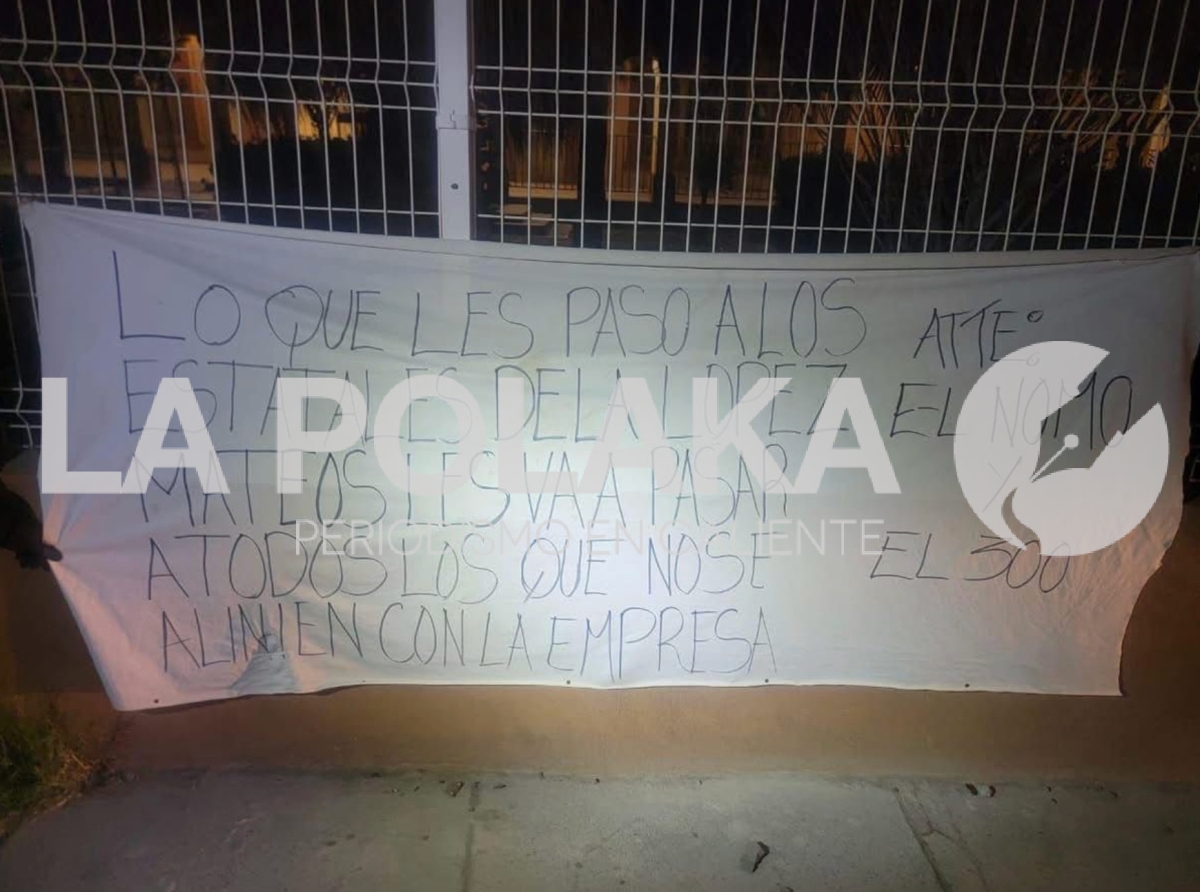 LO QUE LES PASO A LOS
ESTATALES DE LA LOPEZ
MATEOS LES VA A PASAR
A TODOS LOS QUE NO SE
ALINIEN CON LA EMPRESA
ATTE:
EL NOMO
Y
EL 300
LA POLAKA
PERIODISMO EN CALIENTE